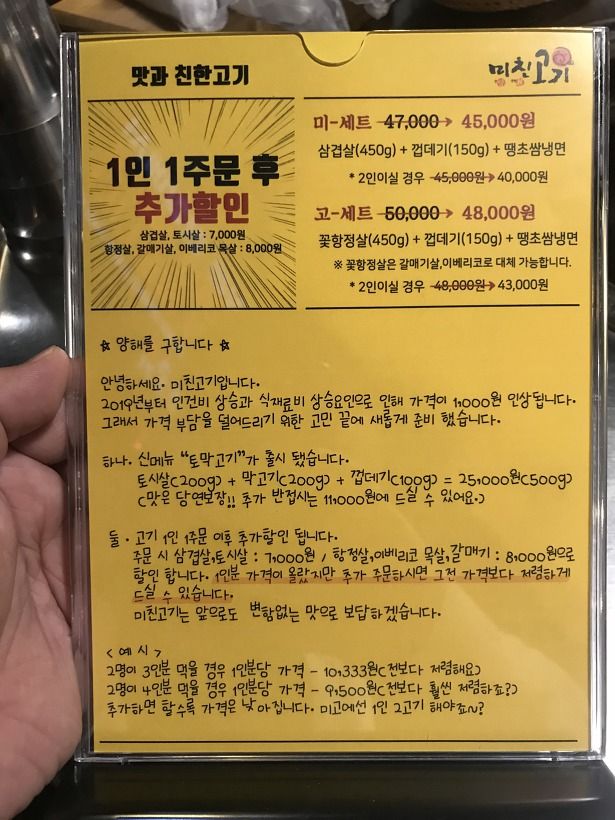 맛과 친한고기
미친고기
1인 1주문 후
추가할인
삼겹살, 토시살 : 7,000원
항정살, 갈매기살, 이베리코 목살 : 8,000원
미-세트 47,000→ 45,000원
삼겹살(450g) + 껍데기(150g) + 땡초쌈냉면
* 2인이실 경우 45,000원→40,000원
고-세트 50,000→ 48,000원
꽃항정살(450g) + 껍데기(150g) + 땡초쌈냉면
※ 꽃항정살은 갈매기살,이베리코로 대체 가능합니다.
* 2인이실 경우 48,000원→43,000원
☆ 양해를 구합니다 ☆
안녕하세요. 미친고기입니다.
2019년부터 인건비 상승과 식재료비 상승요인으로 인해 가격이 1,000원 인상됩니다.
그래서 가격 부담을 덜어드리기 위한 고민 끝에 새롭게 준비 했습니다.
하나. 신메뉴 "도막고기"가 출시 됐습니다.
토시살(200g) + 막고기(200g) + 껍데기(100g) = 25,000원(500g)
(맛은 당연보장!! 추가 반접시는 11,000원에 드실 수 있어요.)
둘. 고기 1인 1주문 이후 추가할인 됩니다.
주문 시 삼겹살,토시살 : 7,000원 / 항정살,이베리코 목살,갈매기 : 8,000원으로
할인 합니다. 1인분 가격이 올랐지만 추가 주문하시면 그전 가격보다 저렴하게
드실 수 있습니다.
미친고기는 앞으로도 변함없는 맛으로 보답하겠습니다.
< 예시 >
2명이 3인분 먹을 경우 1인분당 가격 - 10,333원(전보다 저렴해요)
2명이 4인분 먹을 경우 1인분당 가격 - 9,500원(전보다 훨씬 저렴하죠?)
추가하면 할수록 가격은 낮아집니다. 미고에선 1인 2고기 해야죠~?